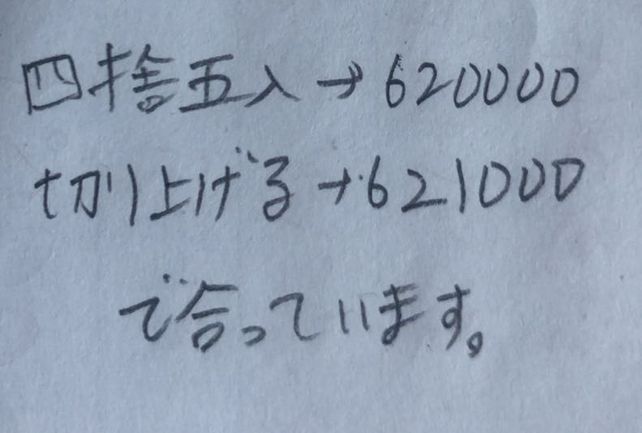 四捨五入→620000
切り上げる→621000
で合っています。